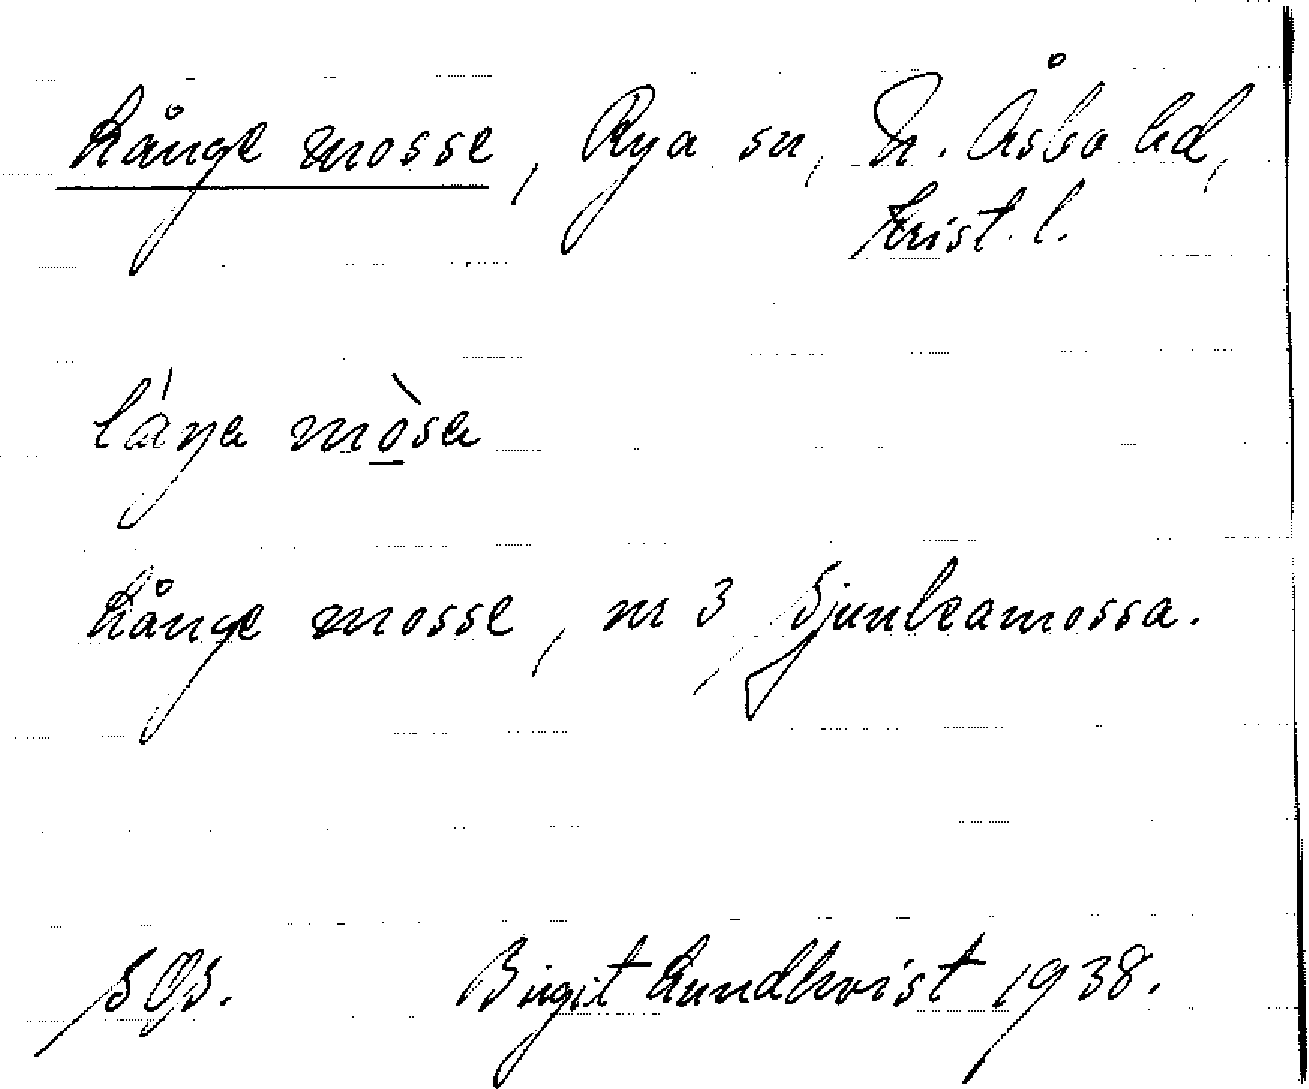 Långe mosse, Rya sn, N. Åsbo hd,
Krist. l.
láŋa mò̠sa
Långe mosse, nr 3, Sjunkamossa.
SOS. Birgit Lundkvist 1938.